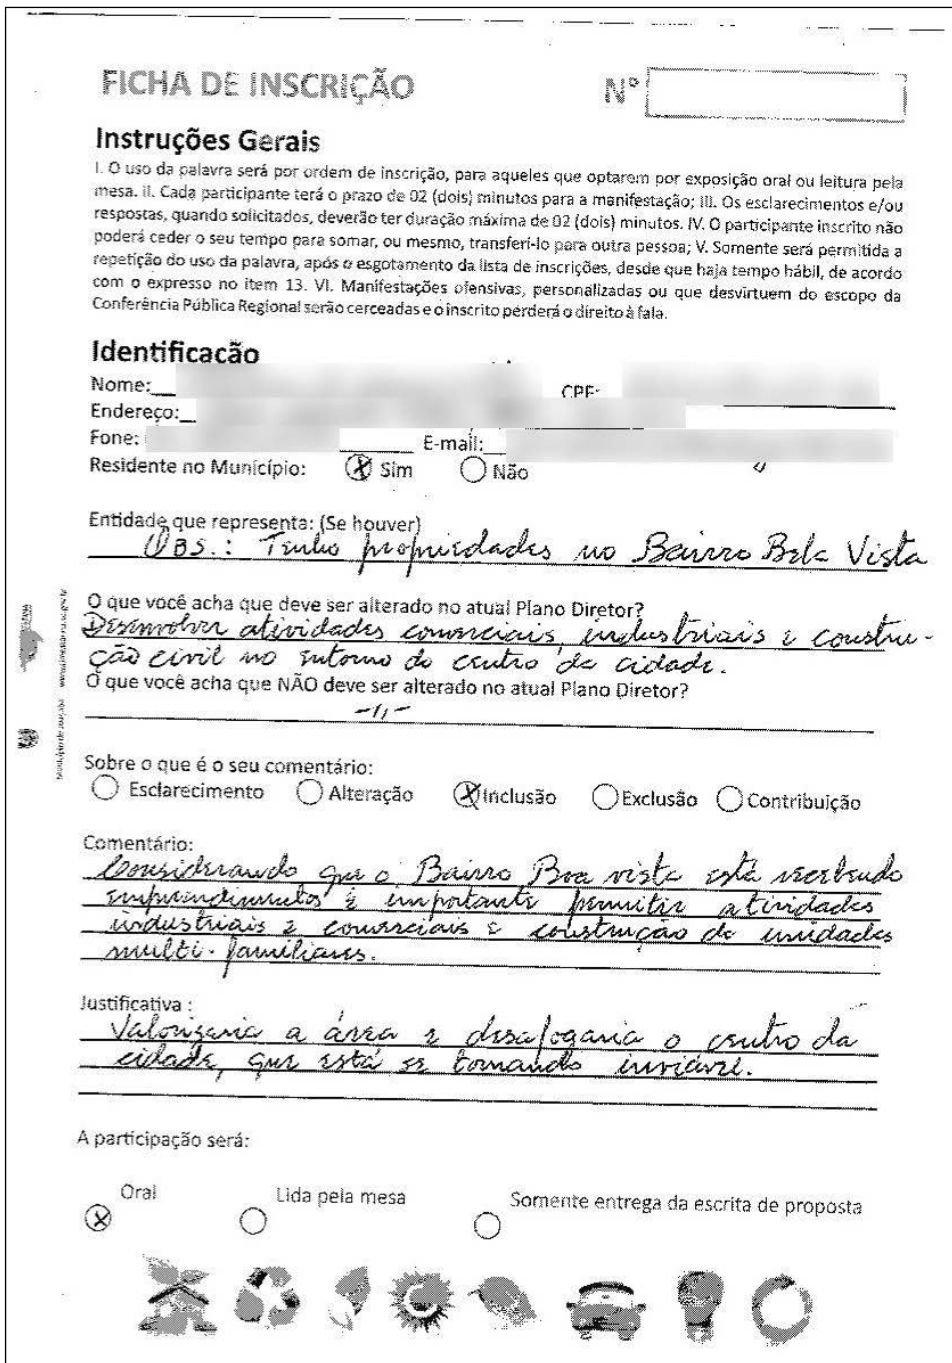 FICHA DE INSCRIÇÃO
Nº
Instruções Gerais
I. O uso da palavra será por ordem de inscrição, para aqueles que optarem por exposição oral ou leitura pela
mesa. II. Cada participante terá o prazo de 02 (dois) minutos para a manifestação; III. Os esclarecimentos e/ou
respostas, quando solicitados, deverão ter duração máxima de 02 (dois) minutos. IV. O participante inscrito não
poderá ceder o seu tempo para somar, ou mesmo, transferí-lo para outra pessoa; V. Somente será permitida a
repetição do uso da palavra, após o esgotamento da lista de inscrições, desde que haja tempo hábil, de acordo
com o expresso no item 13. VI. Manifestações ofensivas, personalizadas ou que desvirtuem do escopo da
Conferência Pública Regional serão cerceadas e o inscrito perderá o direito à fala.
Identificação
Nome: CPF:
Endereço:
Fone: E-mail:
Residente no Município: (X) Sim Não
Entidade que representa: (Se houver)
OBS.: Tenho propriedades no Bairro Bela Vista
O que você acha que deve ser alterado no atual Plano Diretor?
Desenvolver atividades comerciais, industriais e constru-
ção civil no entorno do centro da cidade.
O que você acha que NÃO deve ser alterado no atual Plano Diretor?
-//-
Sobre o que é o seu comentário:
Esclarecimento Alteração (X) Inclusão Exclusão Contribuição
Comentário:
Considerando que o Bairro Boa vista está recebendo
empreendimentos é importante permitir atividades
industriais e comerciais e construção de unidades
multi-familiares.
Justificativa :
Valorizaria a área e desafogaria o centro da
cidade, que está se tornando inviável.
A participação será:
Oral Lida pela mesa Somente entrega da escrita de proposta
(X)